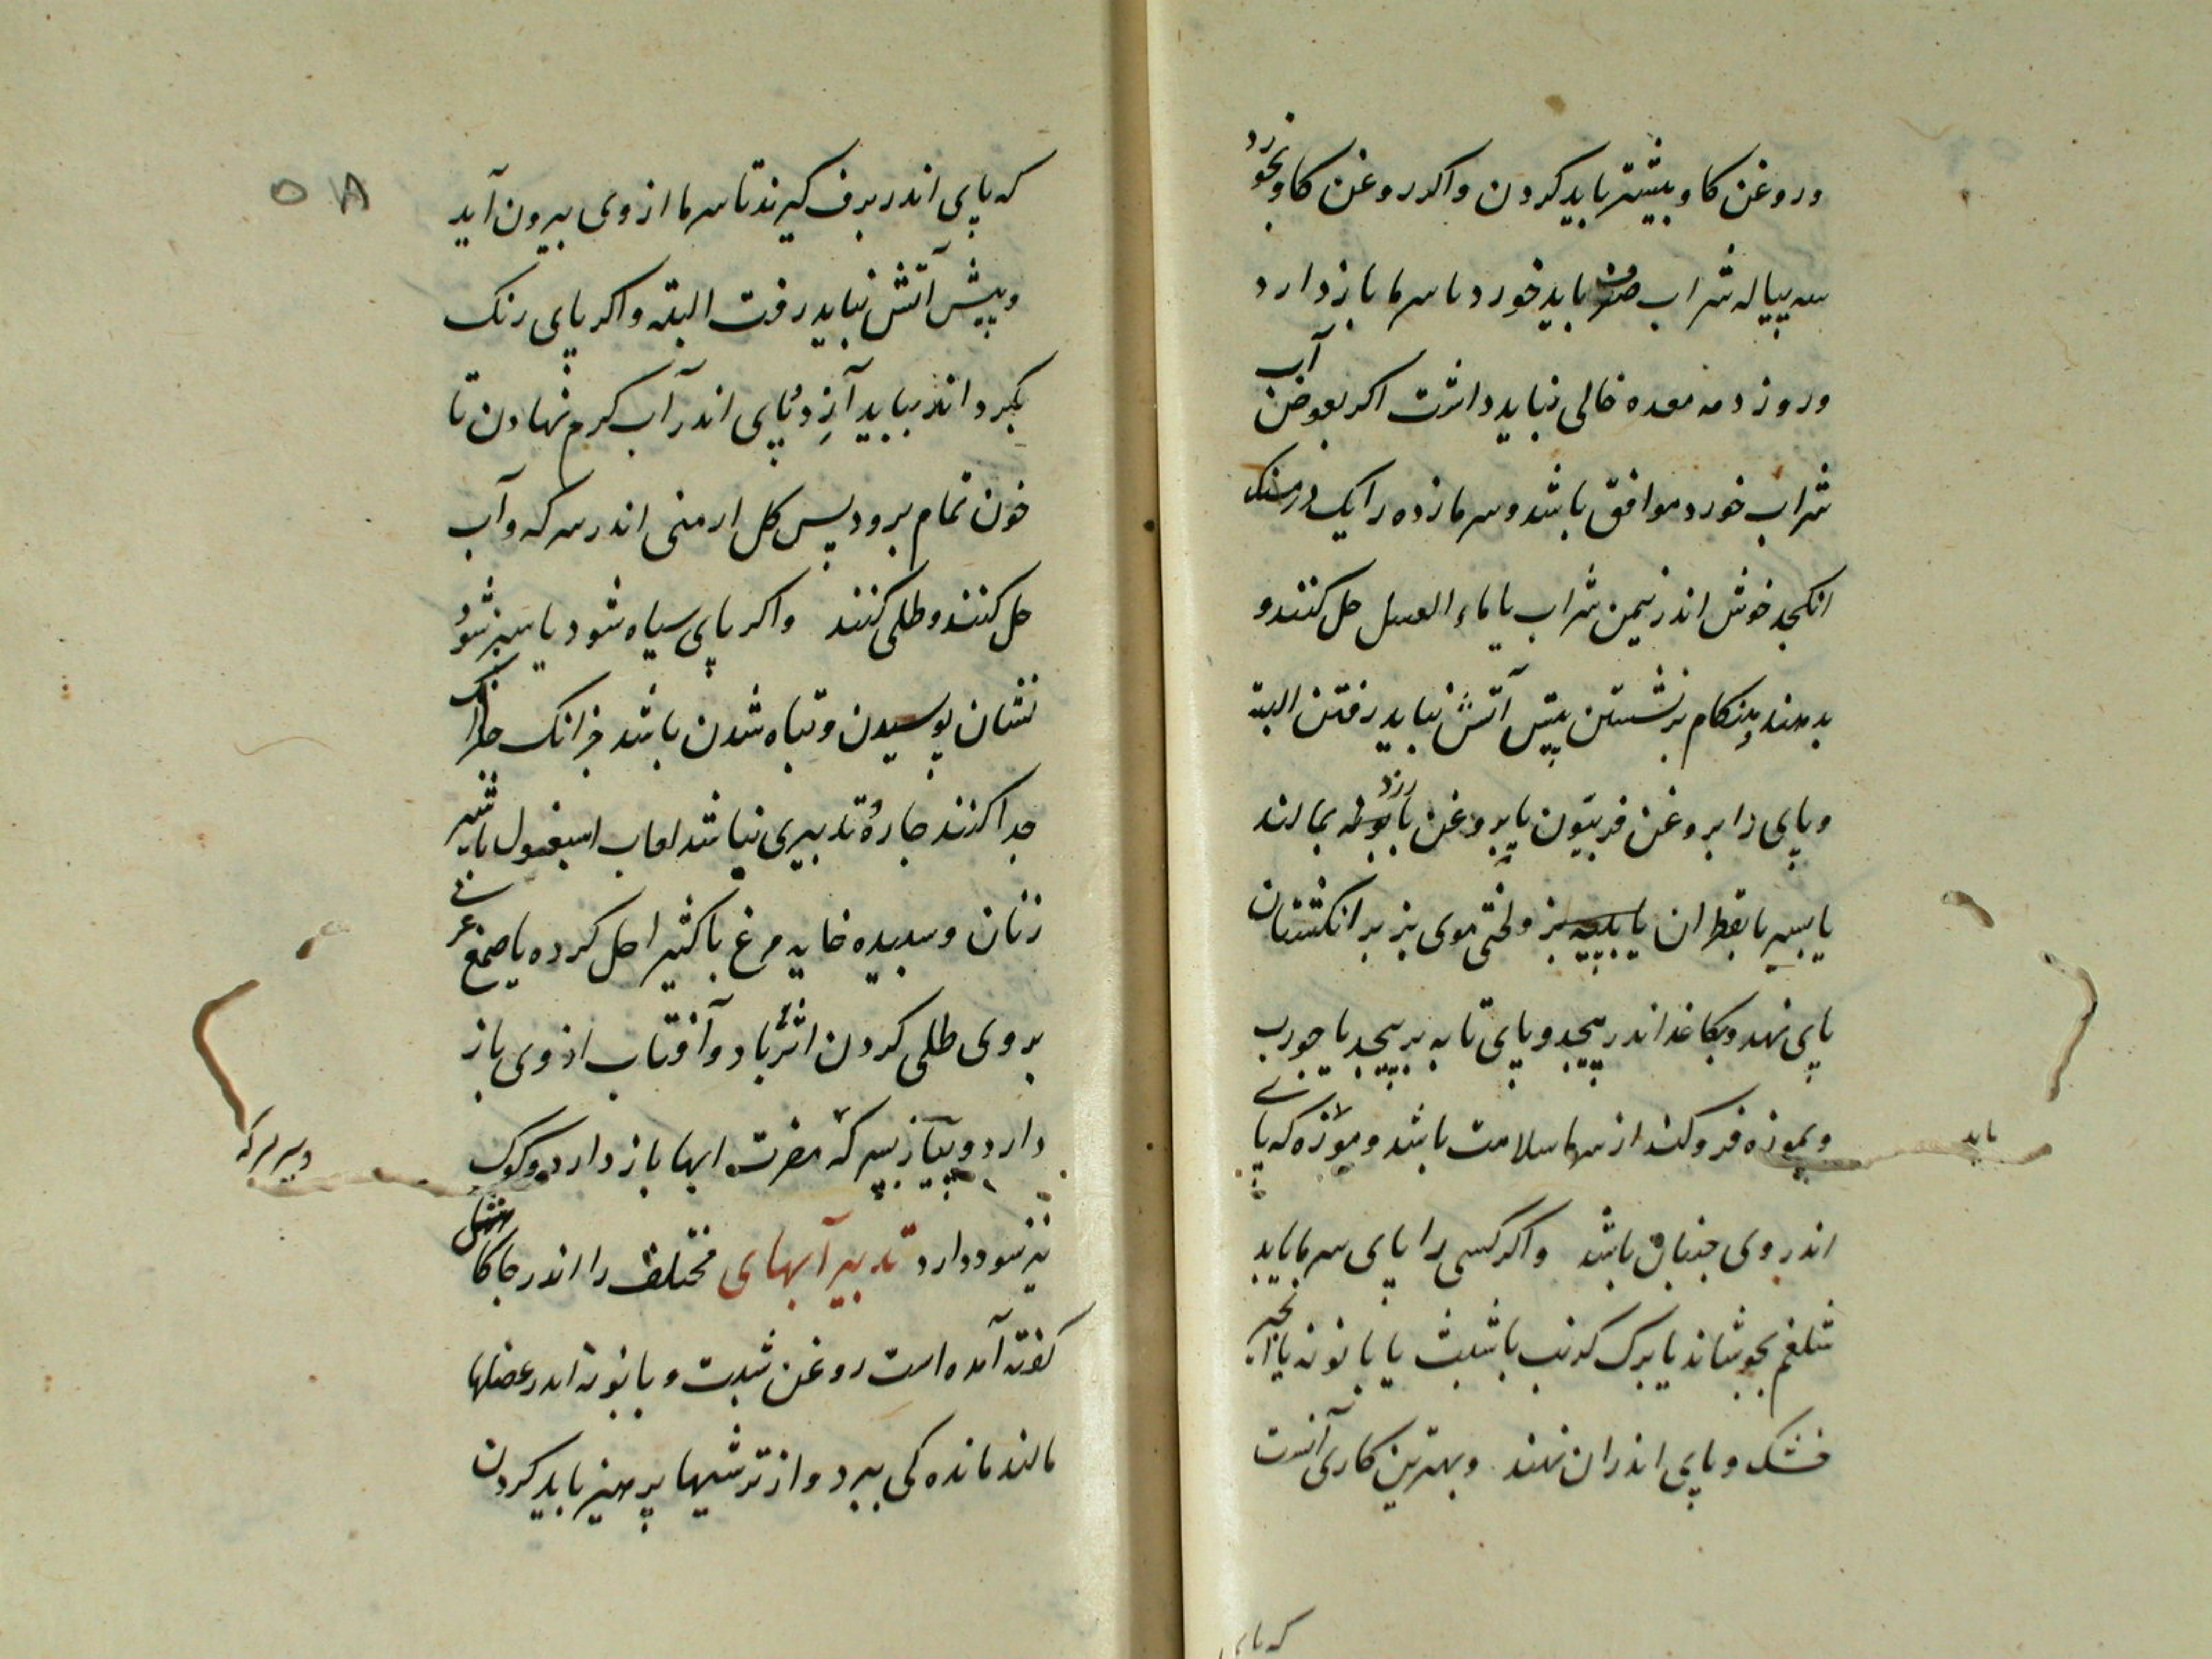 وروغن كاو بیشتر باید كردن واكر روغن كاو بخورد
سه پیاله شراب صرف باید خورد تا سرما باز دارد
وروز دمه معده خالی نباید داشت اكر بعوض آب
شراب خورد موافق باشد وسرمازده را یك درمسنك
انكجد خوش اندر نیمن شراب یا ماء العسل حل كنند و
بدهند وهنكام برنشستن پیش آتش نباید رفتن البته
وپای را بروغن فربیون یا بروغن بمالند
یا سیر یا بقطران یا بز ولختی موی بز بر انكشتان
پای نهد وبكاغذ اندر پیچد وپای تابه بر پیچد یا جورب
وبموزه فرو كند از سرما سلامت باشد وموزه كه پای
باید
اندر وی جنبان باشد واكر كسی را پای سرما یابد
شلغم بجوشاند یا برك كرنب یا شبث یا بابونه یا انجیر
خشك وپای اندران نهند وبهترین كاری آنست
كه پای
۵۸
كه پای اندر برف كیرند تا سرما از وی بیرون آید
وپیش آتش نباید رفت البته واكر پای رنك
بكرداند بباید آزد وپای اندر آب كرم نهادن تا
خون تمام برود پس كل ارمنی اندر سركه وآب
حل كنند وطلی كنند واكر پای سیاه شود یا سبز شود
نشان پوسیدن وتباه شدن باشد جز انك
جدا كنند چاره وتدبیری نباشد لعاب اسبغول با شیر
زنان وسبیده خایه مرغ با كثیرا حل كرده یا صمغ عربی
بروی طلی كردن اثر باد وآفتاب از وی باز
دارد وپیاز بسركه مضرت ابها باز دارد وكوك
نیز سود دارد تدبیر آبهای مختلف را اندر جایكاهش
كفته آمده است روغن شبت وبابونه اندر عضلها
مالند ماندكی ببرد واز ترشیها پرهیز باید كردن